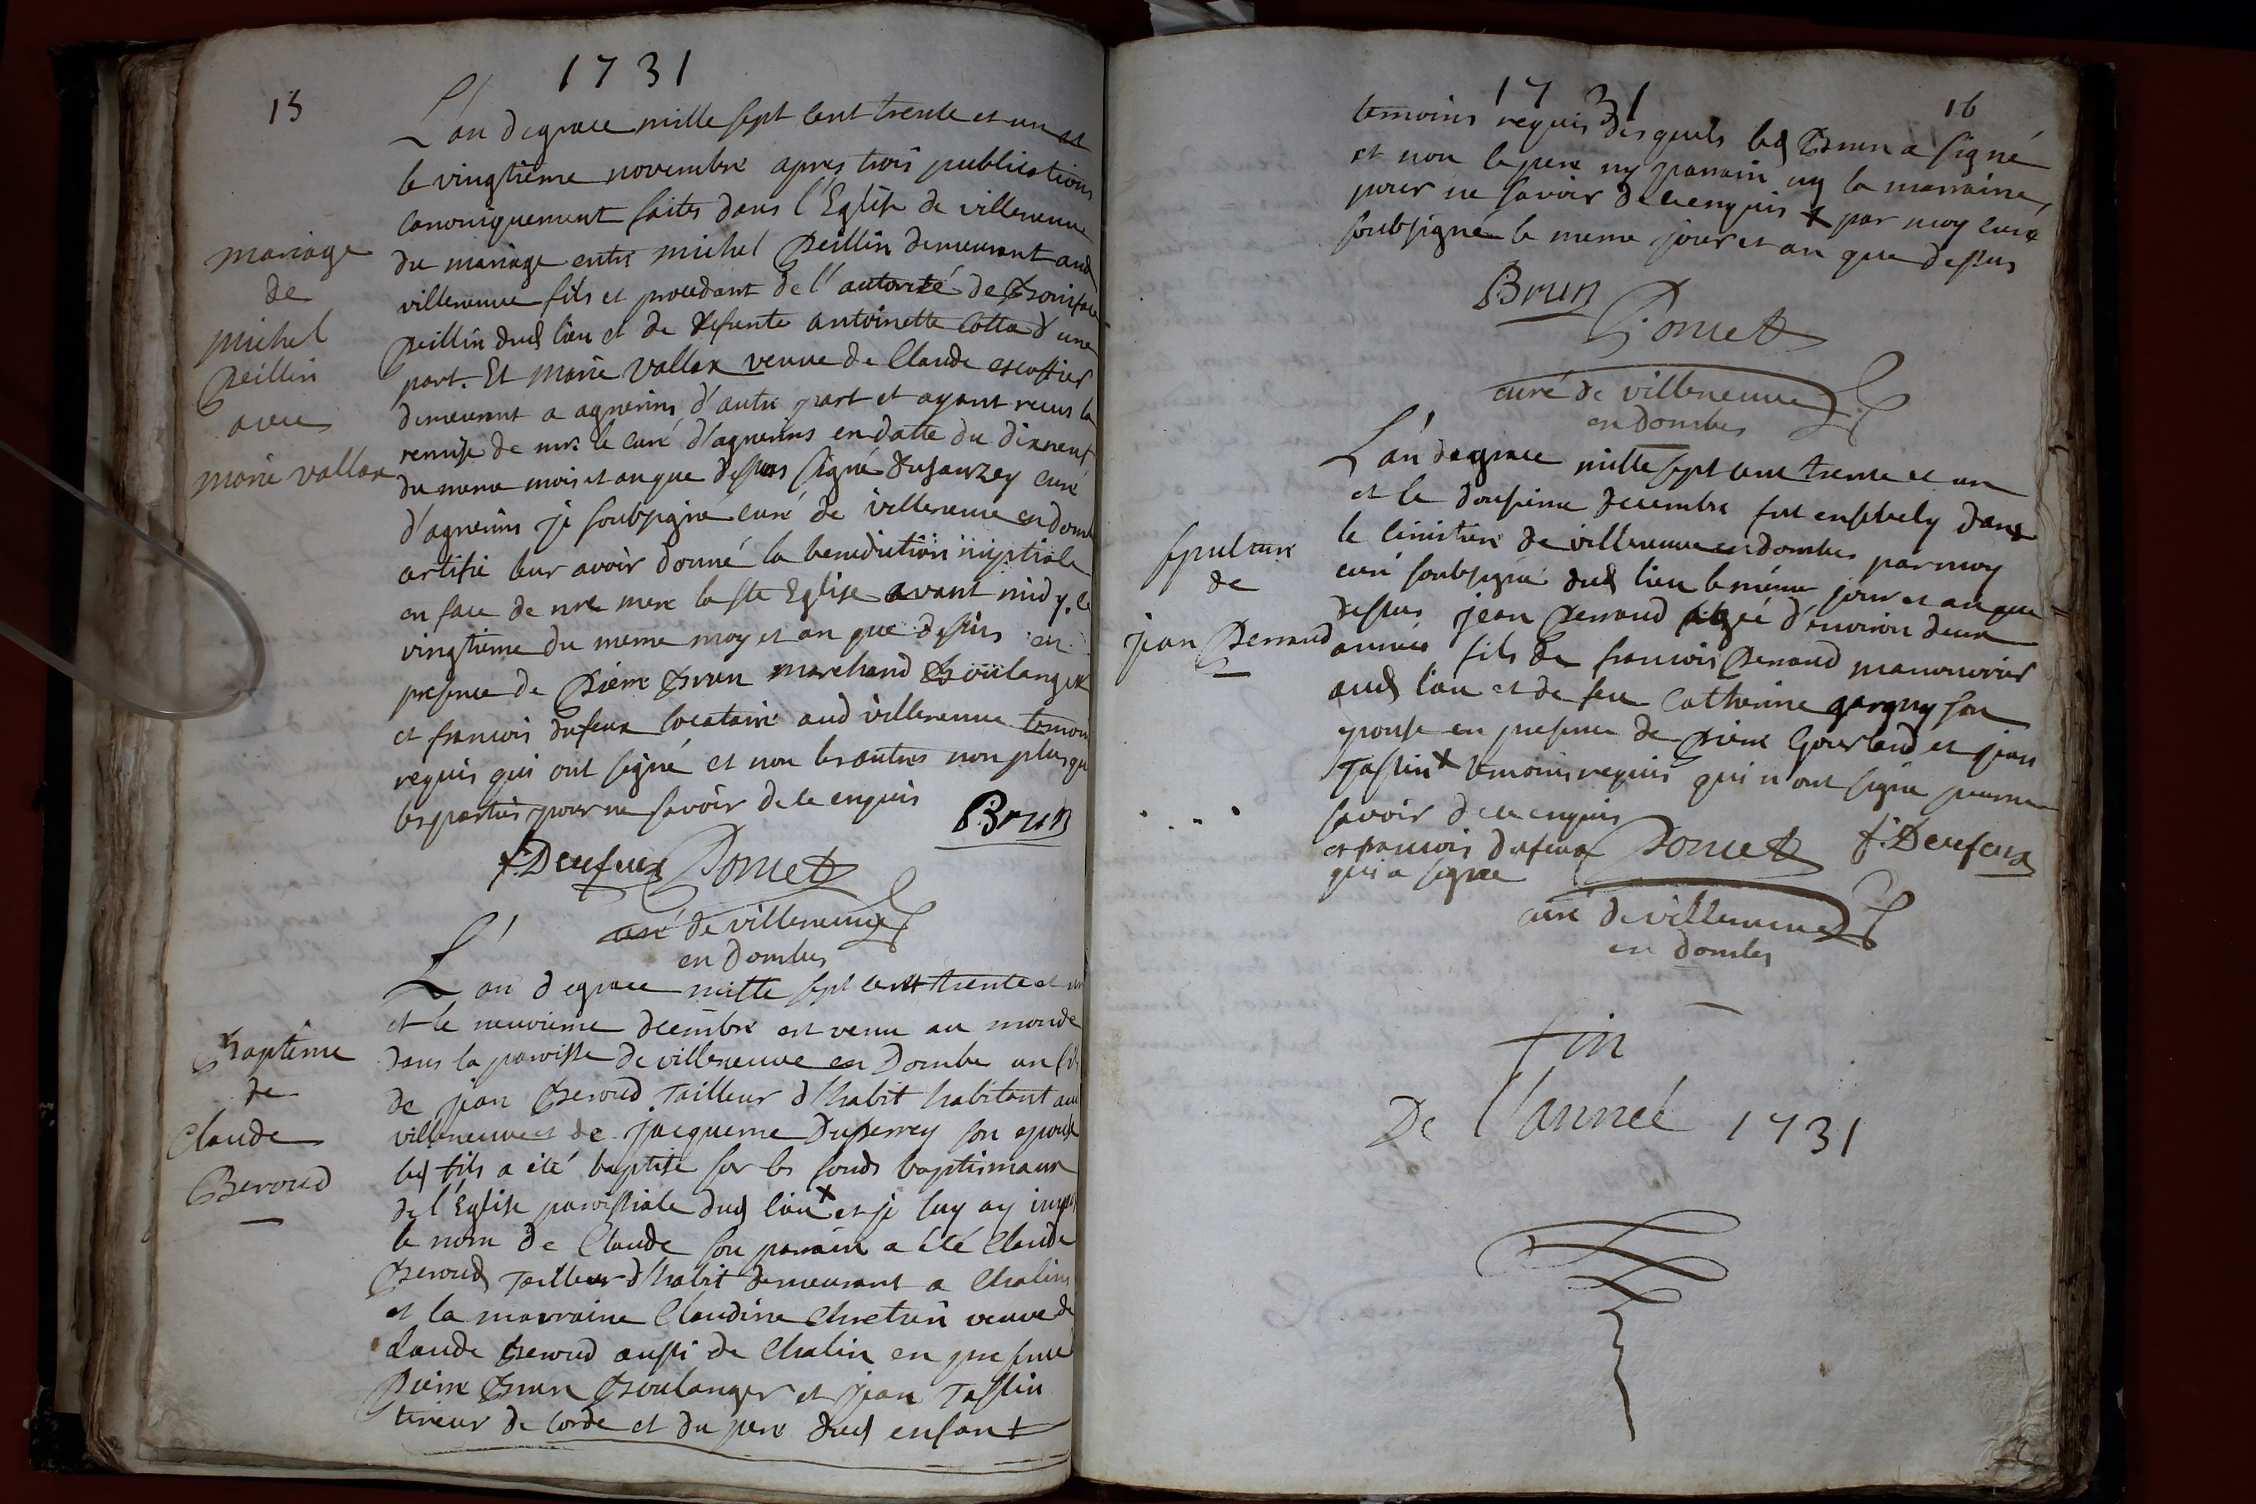 1731
15
L'an de grace mille sept cent trente et un et
le vingtieme novembre apres trois publications
canoniquement faites dans l'Eglise de villeneuve
du mariage entre michel Peillin demeurant aud
villeneuve fils et procedant de l'autorité de Boniface
Peillin dud lieu et de defunte antoinette Cotta d'une
part. Et Marie Vallax veuve de Claude escoffier
demeurant a agnerins d'autre part et ayant recus la
remise de mr. le curé d'agnerins en datte du dixneuf
du meme mois et an que dessus signé Dusauzey curé
d'agnerins je soubsigné curé de villeneuve en dombe
certifie leur avoir donné la benediction nuptiale
en face de nre mere la ste Eglise avant midy. le
vingtieme du meme moy et an que dessus en
presence de Pierre Brun marchand Boulanger
et francois dufeux locataire aud villeneuve temoins
requis qui ont signé et non les autres non plus que
les parties pour ne savoir de ce enquis
Brun
f. Deufeux Poncet
curé de villeneuve
en Dombes
mariage
de
Michel
Peillin
avec
marie vallax
L'an de grace mille sept cent trente et un
et le neuvieme decembre est venu au monde
dans la paroisse de villeneuve en Dombe un fils
de jean Beroud Tailleur d'habit habitant aud
villeneuve et de jacqueme Duperrey son epouse
led fils a été baptisé sur les fonds baptismaux
de l'Eglise paroissiale dud lieu x et je luy ay imposé
le nom de Claude son parain a été Claude
Beroud Tailleur d'habit demeurant a Chalins
et la marraine Claudine Chretien veuve de
Claude Beroud aussi de Chalin en presence
Pierre Brun Boulanger et jean Tassin
tireur de corde et du pere dud enfant
Baptême
de
Claude
Beroud
1731
16
temoins requis desquels led Brun a signé
et non le pere ny parain ny la marraine
pour ne savoir de ce enquis x par moy curé
soubsigné le meme jour et an que dessus
Brun
Poncet
curé de villeneuve
en Dombes
L'an de grace mille sept cent trente et un
et le dousieme decembre fut ensevely dans
le cimetiere de villeneuve en dombes par moy
curé soubsigné dud lieu le méme jour et an que
dessus jean Perraud agée d'environ deux
années fils de francois Perraud manouvrier
aud lieu et de feu Catherine gargny son
epouse en presence de Pierre Gourland et jean
Tassin x temoins requis qui n'ont signé pour ne
savoir de ce enquis
et francois dufeux
qui a signé
Poncet f. Deufeux
curé de villeneuve
en Dombes
sepulture
de
jean Perraud
Fin
De l'anneé 1731